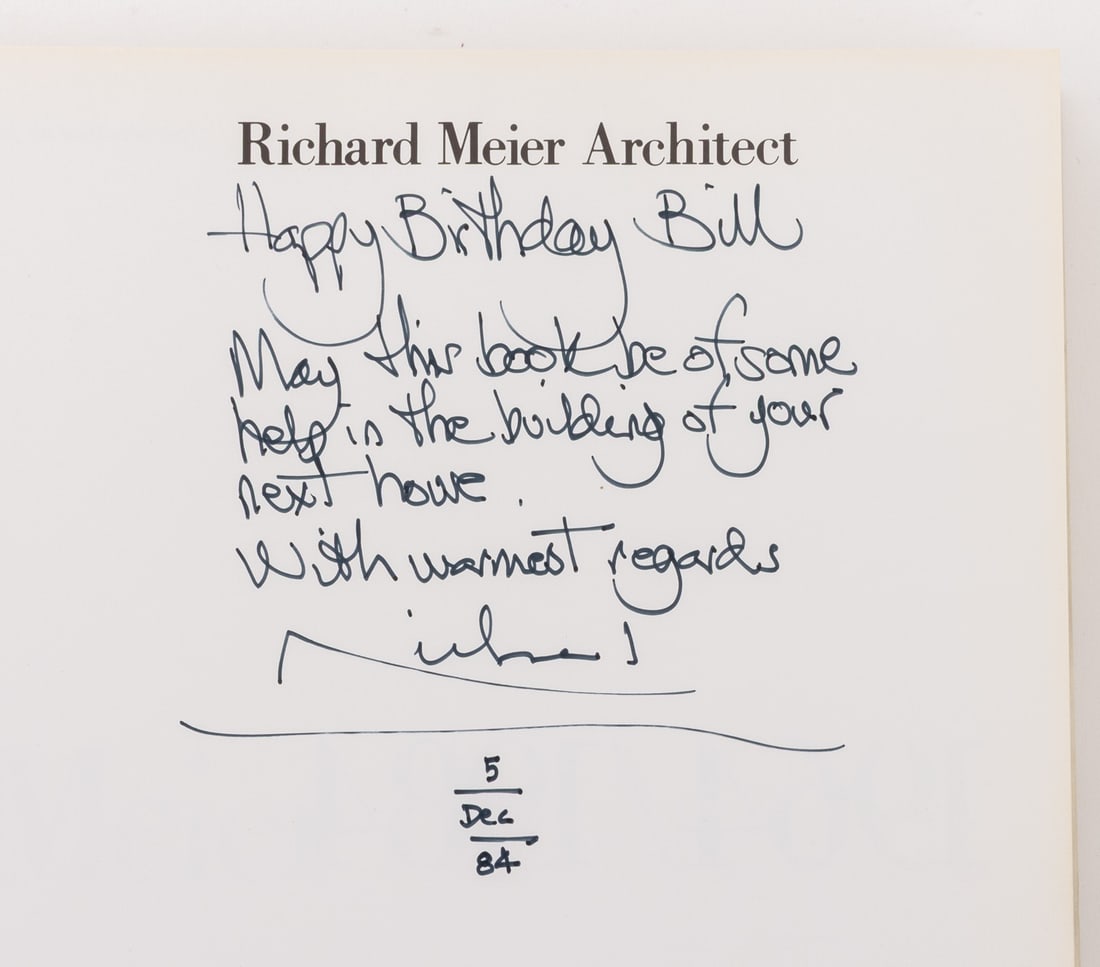 Richard Meier Architect
Happy Birthday Bill
May this book be of some
help in the building of your
next home.
With warmest regards
Richard
5
Dec
84